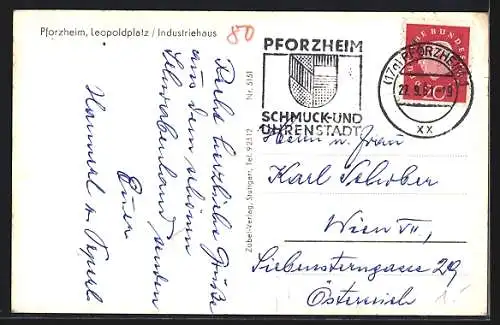 Pforzheim, Leopoldplatz / Industriehaus
80
PFORZHEIM
SCHMUCK-UND
UHRENSTADT
(17a) PFORZHEIM
xx
DEUTSCHE BUNDESPOST
Nr. 5151
Zobel-Verlag, Stuttgart, Tel. 92312
Recht herzliche Grüße
aus dem schönen
Schwabenland senden
Euer
Hannerl u. Pepperl
Herrn u. Frau
Karl Schober
Wien VII,
Siebensterngasse 29
Österreich
1.-